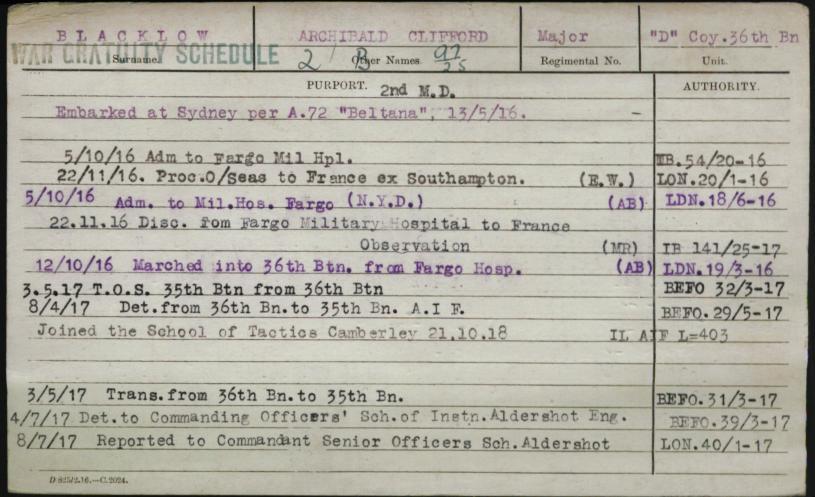 BLACKLOW ARCHIBALD CLIFFORD Major "D" Coy.36th Bn
WAR GRATUITY SCHEDULE 2 B
Surname. Other Names. Regimental No. Unit.
PURPORT. 2nd M.D. AUTHORITY.
Embarked at Sydney per A.72 "Beltana", 13/5/16. -
5/10/16 Adm to Fargo Mil Hpl. MB.54/20-16
22/11/16. Proc.O/Seas to France ex Southampton. (E.W.) LON.20/1-16
5/10/16 Adm. to Mil.Hos. Fargo (N.Y.D.) (AB) LDN.18/6-16
22.11.16 Disc. fom Fargo Military Hospital to France
Observation (MR) IB 141/25-17
12/10/16 Marched into 36th Btn. from Fargo Hosp. (AB) LDN.19/3-16
3.5.17 T.O.S. 35th Btn from 36th Btn BEFO 32/3-17
8/4/17 Det.from 36th Bn.to 35th Bn. A.I F. BEFO.29/5-17
Joined the School of Tactics Camberley 21.10.18 IL AIF L=403
3/5/17 Trans.from 36th Bn.to 35th Bn. BEFO.31/3-17
4/7/17 Det.to Commanding Officers' Sch.of Instn.Aldershot Eng. BEFO.39/3-17
8/7/17 Reported to Commandant Senior Officers Sch.Aldershot LON.40/1-17
D 825/2.16.—C.2024.